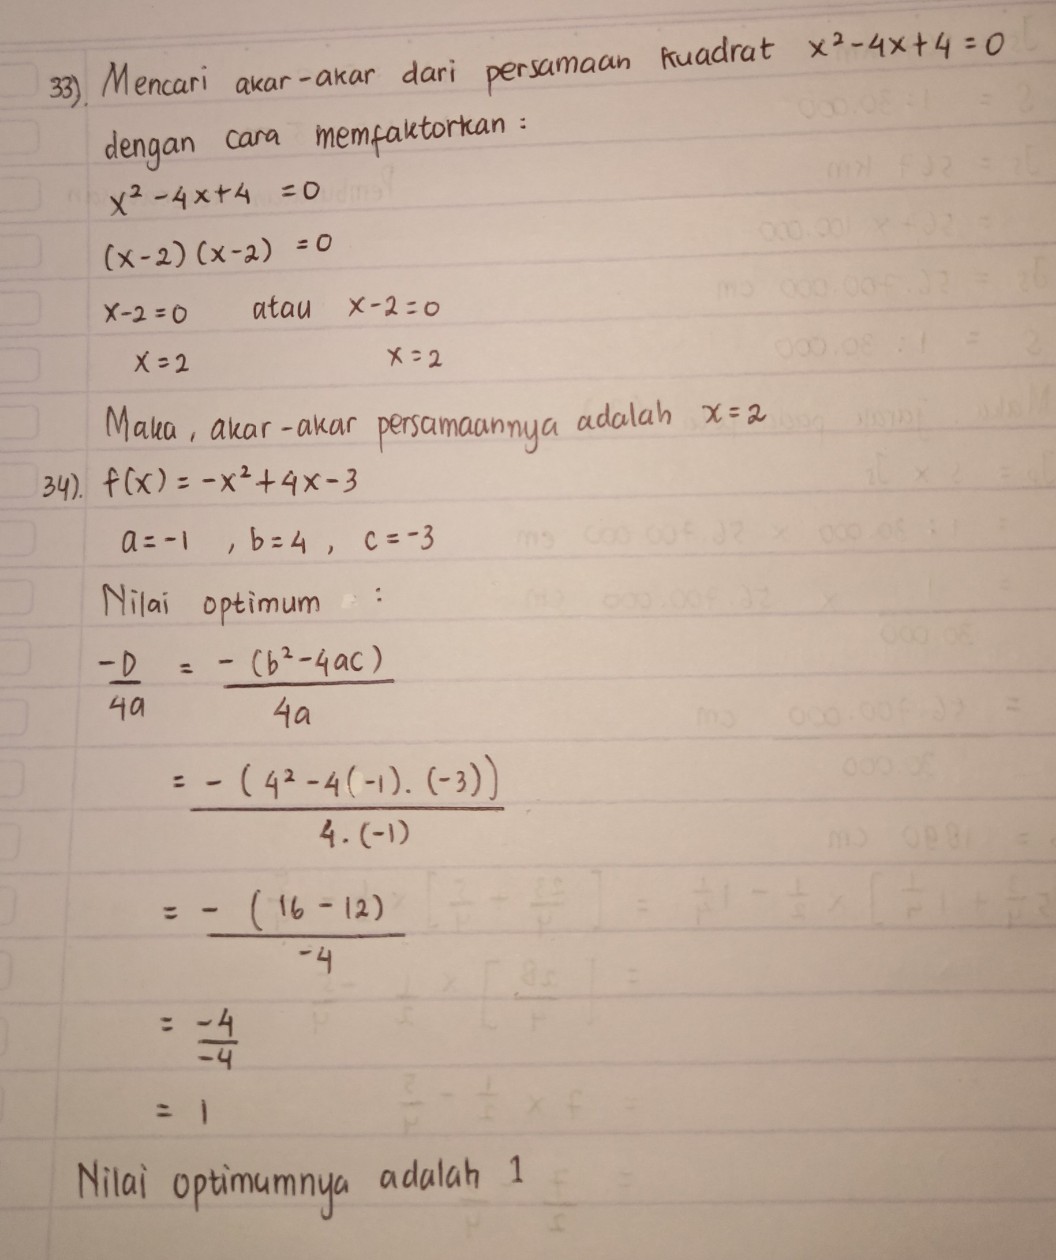 33). Mencari akar-akar dari persamaan kuadrat x²-4x+4=0
dengan cara memfaktorkan :
x²-4x+4 =0
(x-2)(x-2) =0
x-2=0 atau x-2=0
x=2 x=2
Maka, akar-akar persamaannya adalah x=2
34). f(x) = -x²+4x-3
a=-1 , b=4 , c=-3
Nilai optimum :
-D/4a = -(b²-4ac)/4a
= -(4²-4(-1).(-3))/4.(-1)
= -(16-12)/-4
= -4/-4
= 1
Nilai optimumnya adalah 1